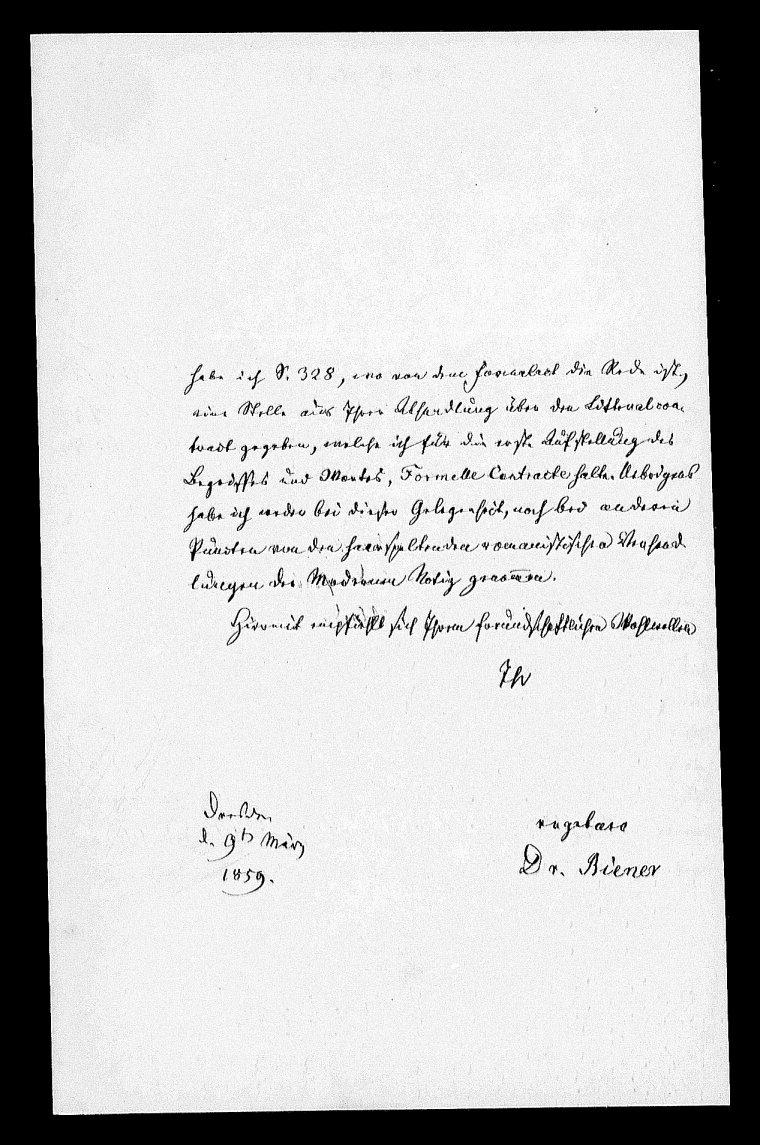 habe ich S. 328, wo von dem Formalact die Rede ist,
eine Stelle aus Ihrer Abhandlung über den Litteralcon-
tract gegeben, welche ich für die erste Aufstellung des
Begriffes und Wortes, Formelle Contracte halte. Uebrigens
habe ich weder bei dieser Gelegenheit, noch bei anderen
Puncten von den haarspaltenden romanistischen Verhand-
lungen der Modernen Notiz genommen.
Hiermit empfiehlt sich Ihrem freundschaftlichen Wohlwollen
Ihr
Dresden
d. 9th März
1859.
ergebene
Dr. Biener